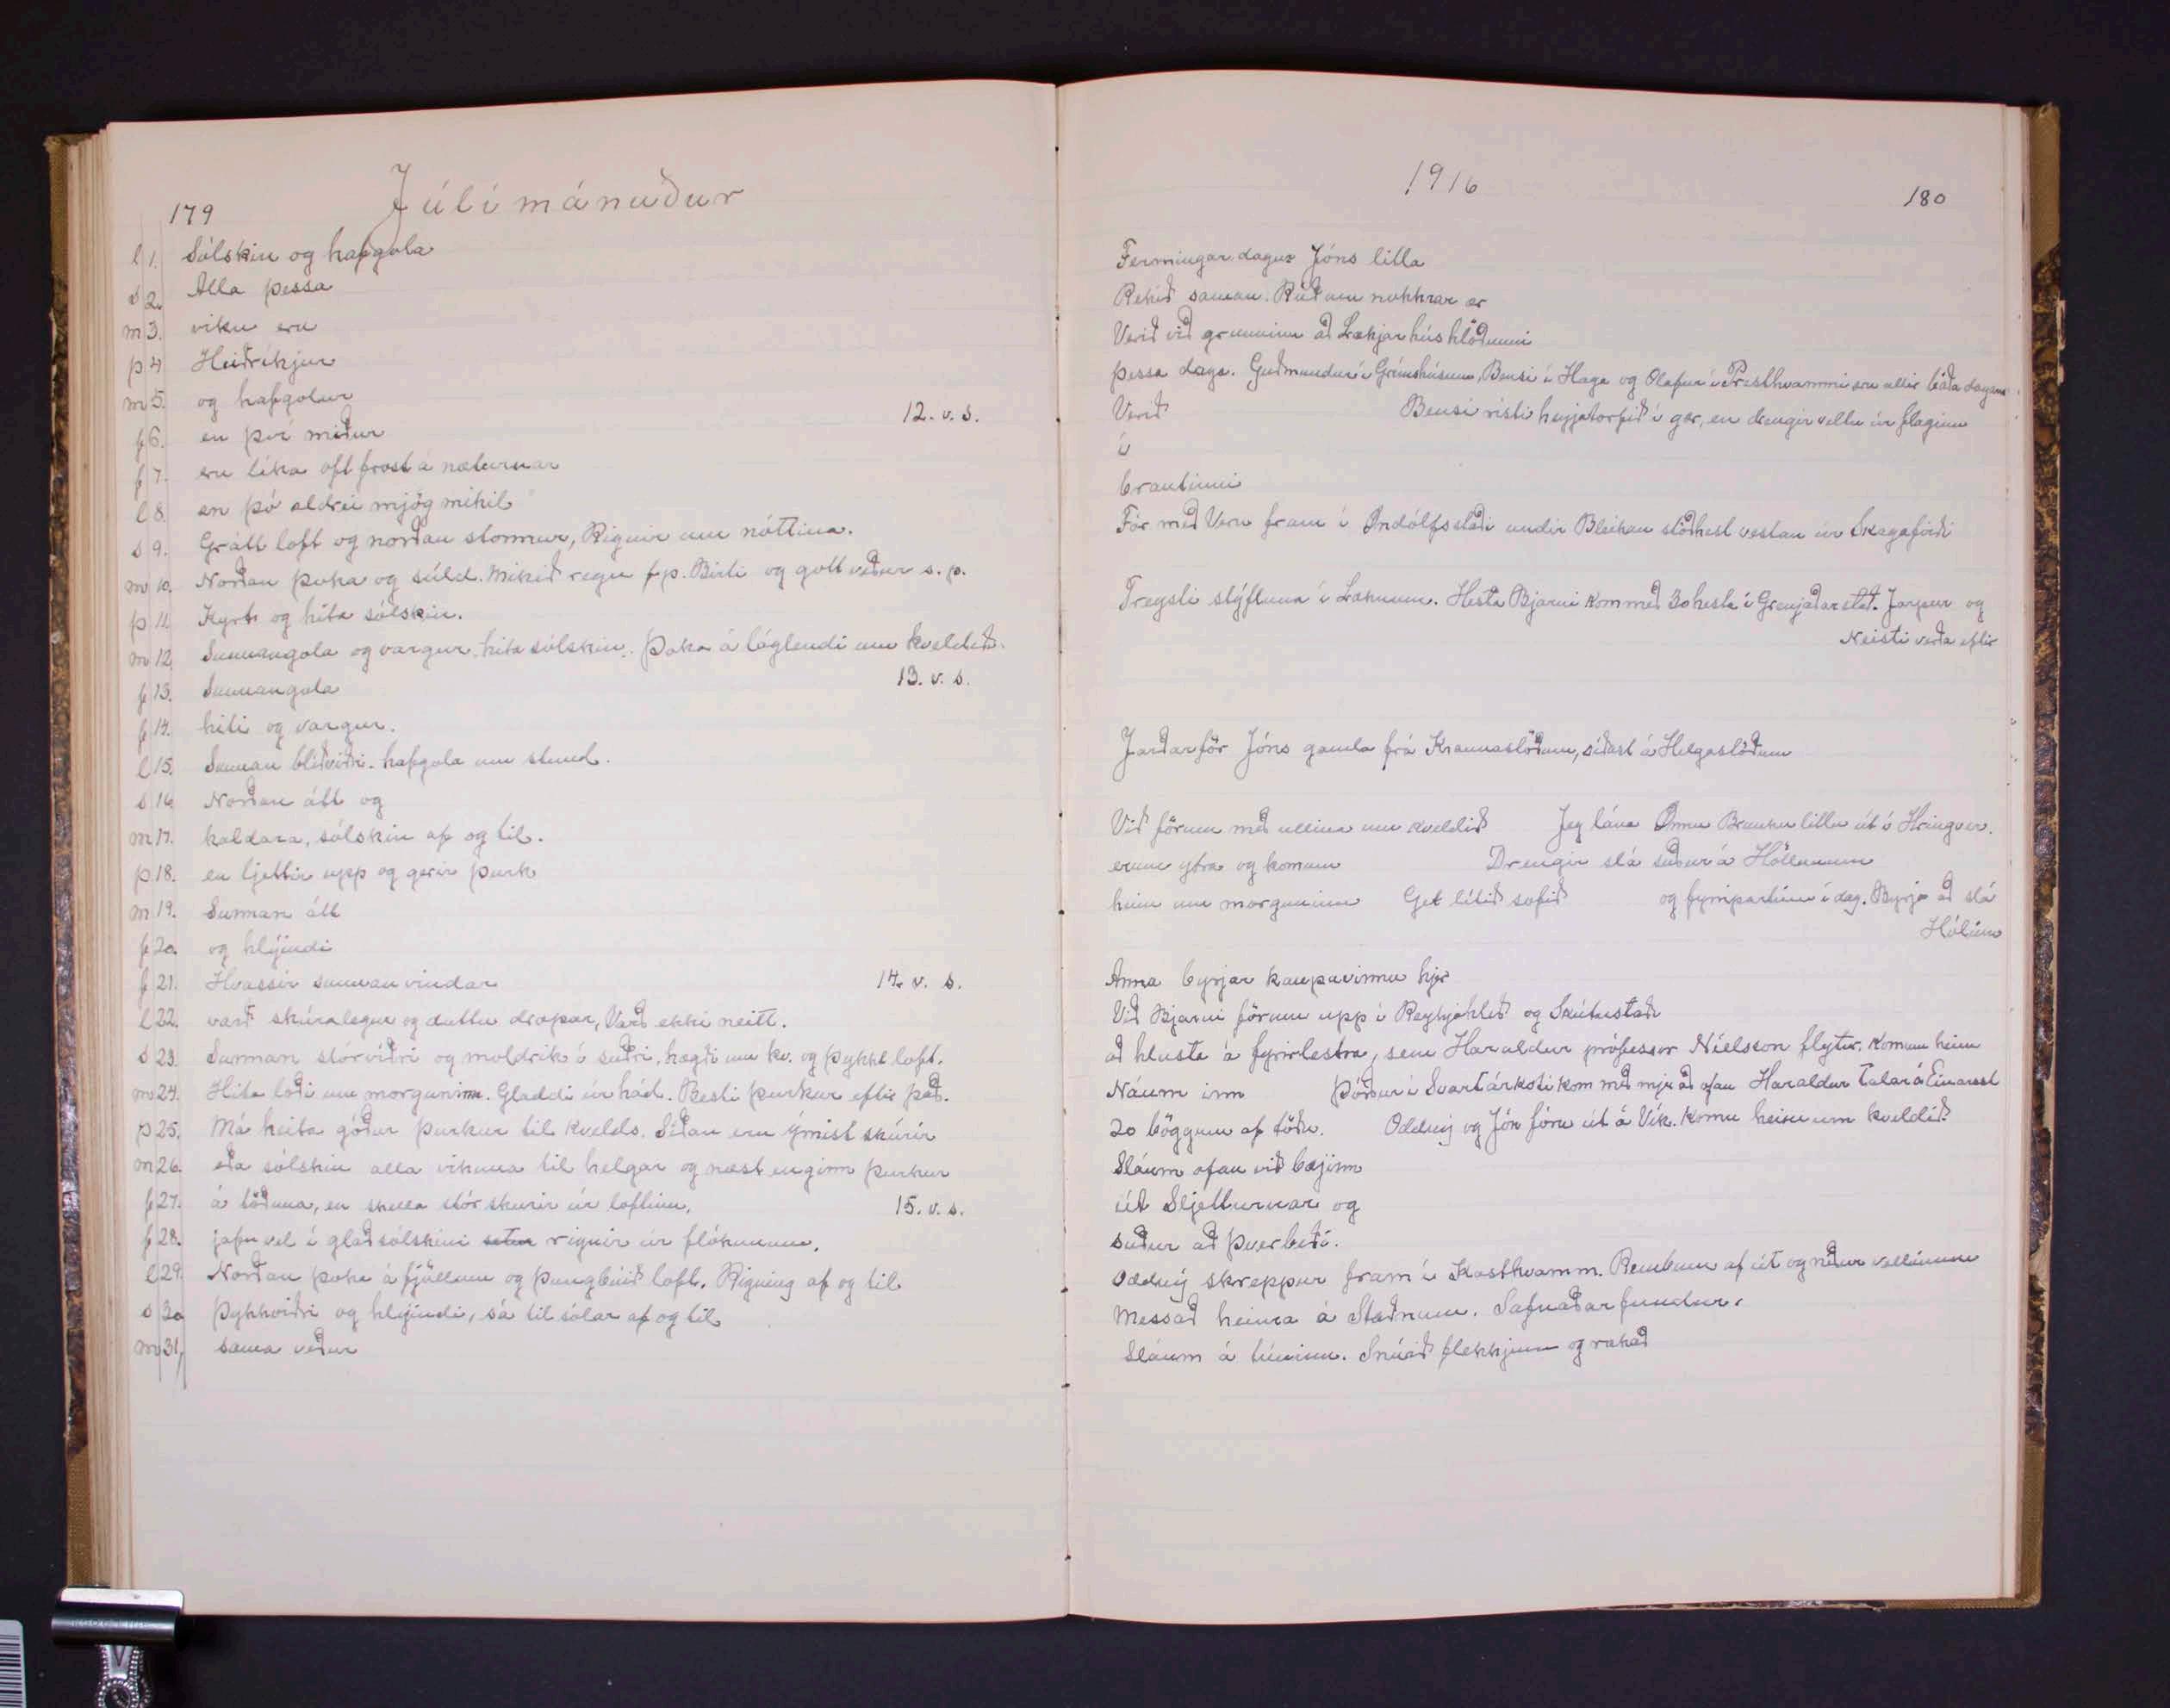 179
Júlímánuður
l 1. Sólskin og hafgola
s 2. Alla þessa
m 3. viku eru
þ 4 Heiðríkjur
m 5. og hafgolur
12. v. s.
f 6. en því miður
f 7. eru líka oft frost á næturnar
l 8. en þó aldrei mjög mikil
s 9. Grátt loft og norðan stormur, Rignir um nóttina.
m 10. Norðan þoka og súld. Mikið regn f.p. Birti og gott veður s. p.
þ 11. Kyrt og hita sólskin.
m 12. Sunnangola og vargur, hita sólskin. Þoka á láglendi um kveldið.
f 13. Sunnangola
13. v. s.
f 14. hiti og vargur.
l 15. Sunnan blíðviðri. hafgola um stund.
s 16 Norðan átt og
m 17. kaldara, sólskin af og til.
þ 18. en ljettir upp og gerir þurk
m 19. Sunnan átt
f 20. og hlýindi
f 21. Hvassir sunnan vindar
14. v. s.
l 22. varð skúralegur og duttu dropar, Varð ekki neitt.
s 23. Sunnan stórviðri og moldrik í suðri, hægði um kv. og þykkt loft.
m 24. Hita loði um morguninn. Gladdi úr hád. Besti þurkur eftir það.
þ 25. Má heita góður þurkur til kvelds. Síðan eru ýmist skúrir
m 26. eða sólskin alla vikuna til helgar og næst enginn þurkur
f 27. á töðuna, en skella stór skurir úr loftinu,
15. v. s.
f 28. jafnvel í glaðsólskini rignir úr flókunum.
l 29. Norðan þoka á fjöllum og þungbúið loft. Rigning af og til
s 30 Þykkviðri og hlýindi, sá til sólar af og til
m 31, sama veður
1916
180
Fermingar dagur Jóns lilla
Rekið saman. Rúðum nokkrar ær
Verið við grunninn að Lækjarhúshlöðunni
þessa daga. Guðmundur í Grímshúsum, Bensi í Haga og Olafur í Presthvammi eru allir báða dagana
Verið Bensi risti heyjatorfið í gær, en drengir veltu úr flaginu
í
brautinni
Fór með Veru fram í Indólfsstaði undir Bleikan stóðhest vestan úr Skagafirði
Treysti stýfluna í Læknum. Hesta Bjarni kom með 30 hesta í Grenjaðarstað. Jarpur og
Neisti verða eftir
Jarðarför Jóns gamla frá Kraunastöðum, síðast á Helgastöðum
Við förum með ullina um kveldið Jeg lána Önnu Brunku litlu út í Hringver.
erum ytra og komum Drengir slá suður á Höllunum
heim um morguninn Get lítið sofið og fyrripartinn í dag. Byrja að slá
Hólinn
Anna byrjar kaupavinnu hjer
Við Bjarni förum upp í Reykjahlíð og Skútustaði
að hlusta á fyrirlestra, sem Haraldur prófessor Níelsson flytur. Komum heim
Náum inn Þórður í Svartárkoti kom með mjer að ofan Haraldur talar á Einarsst
20 böggum af töðu. Oddný og Jón fóru út á Vík. Komu heim um kveldið
Sláum ofan við bæjinn
út Sljetturnar og
suður að Þverbeði.
Oddný skreppur fram í Kasthvamm. Rembum af út og niður vellinum
Messað heima á Staðnum. Safnaðarfundur.
Sláum á túninu. Snúið flekkjum og rakað